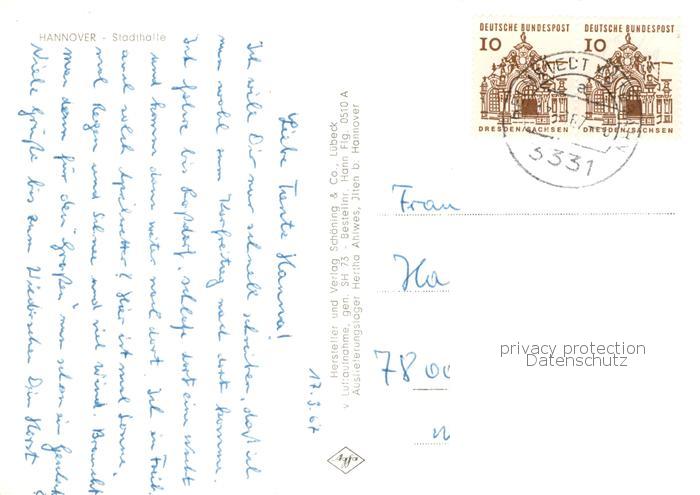 HANNOVER - Stadthalle
17.3.67
Liebe Tante Hanna!
Ich will Dir nur schnell schreiben, daß ich
nun wohl zum Karfreitag nach dort komme.
Ich fahre bis Roßdorf, schlafe dort eine Nacht
und komm dann weiter nach dort. Ist in Freib.
auch solch Aprilwetter? Hier ist mal Sonne,
mal Regen und Schnee und viel Wind. Braucht
man denn für den "Großen" nun schon ein
Viele Grüße bis zum Wiedersehen Dein Horst
Hersteller und Verlag Schöning & Co., Lübeck
v. Luftaufnahme, gen. SH 73 - Bestellnr. Hann Flg. 0510 A
Auslieferungslager Hertha Ahlwes, Jlten b. Hannover
DEUTSCHE BUNDESPOST
10
DRESDEN/SACHSEN
DEUTSCHE BUNDESPOST
10
DRESDEN/SACHSEN
3331
Frau
Ha
78 00
privacy protection
Datenschutz